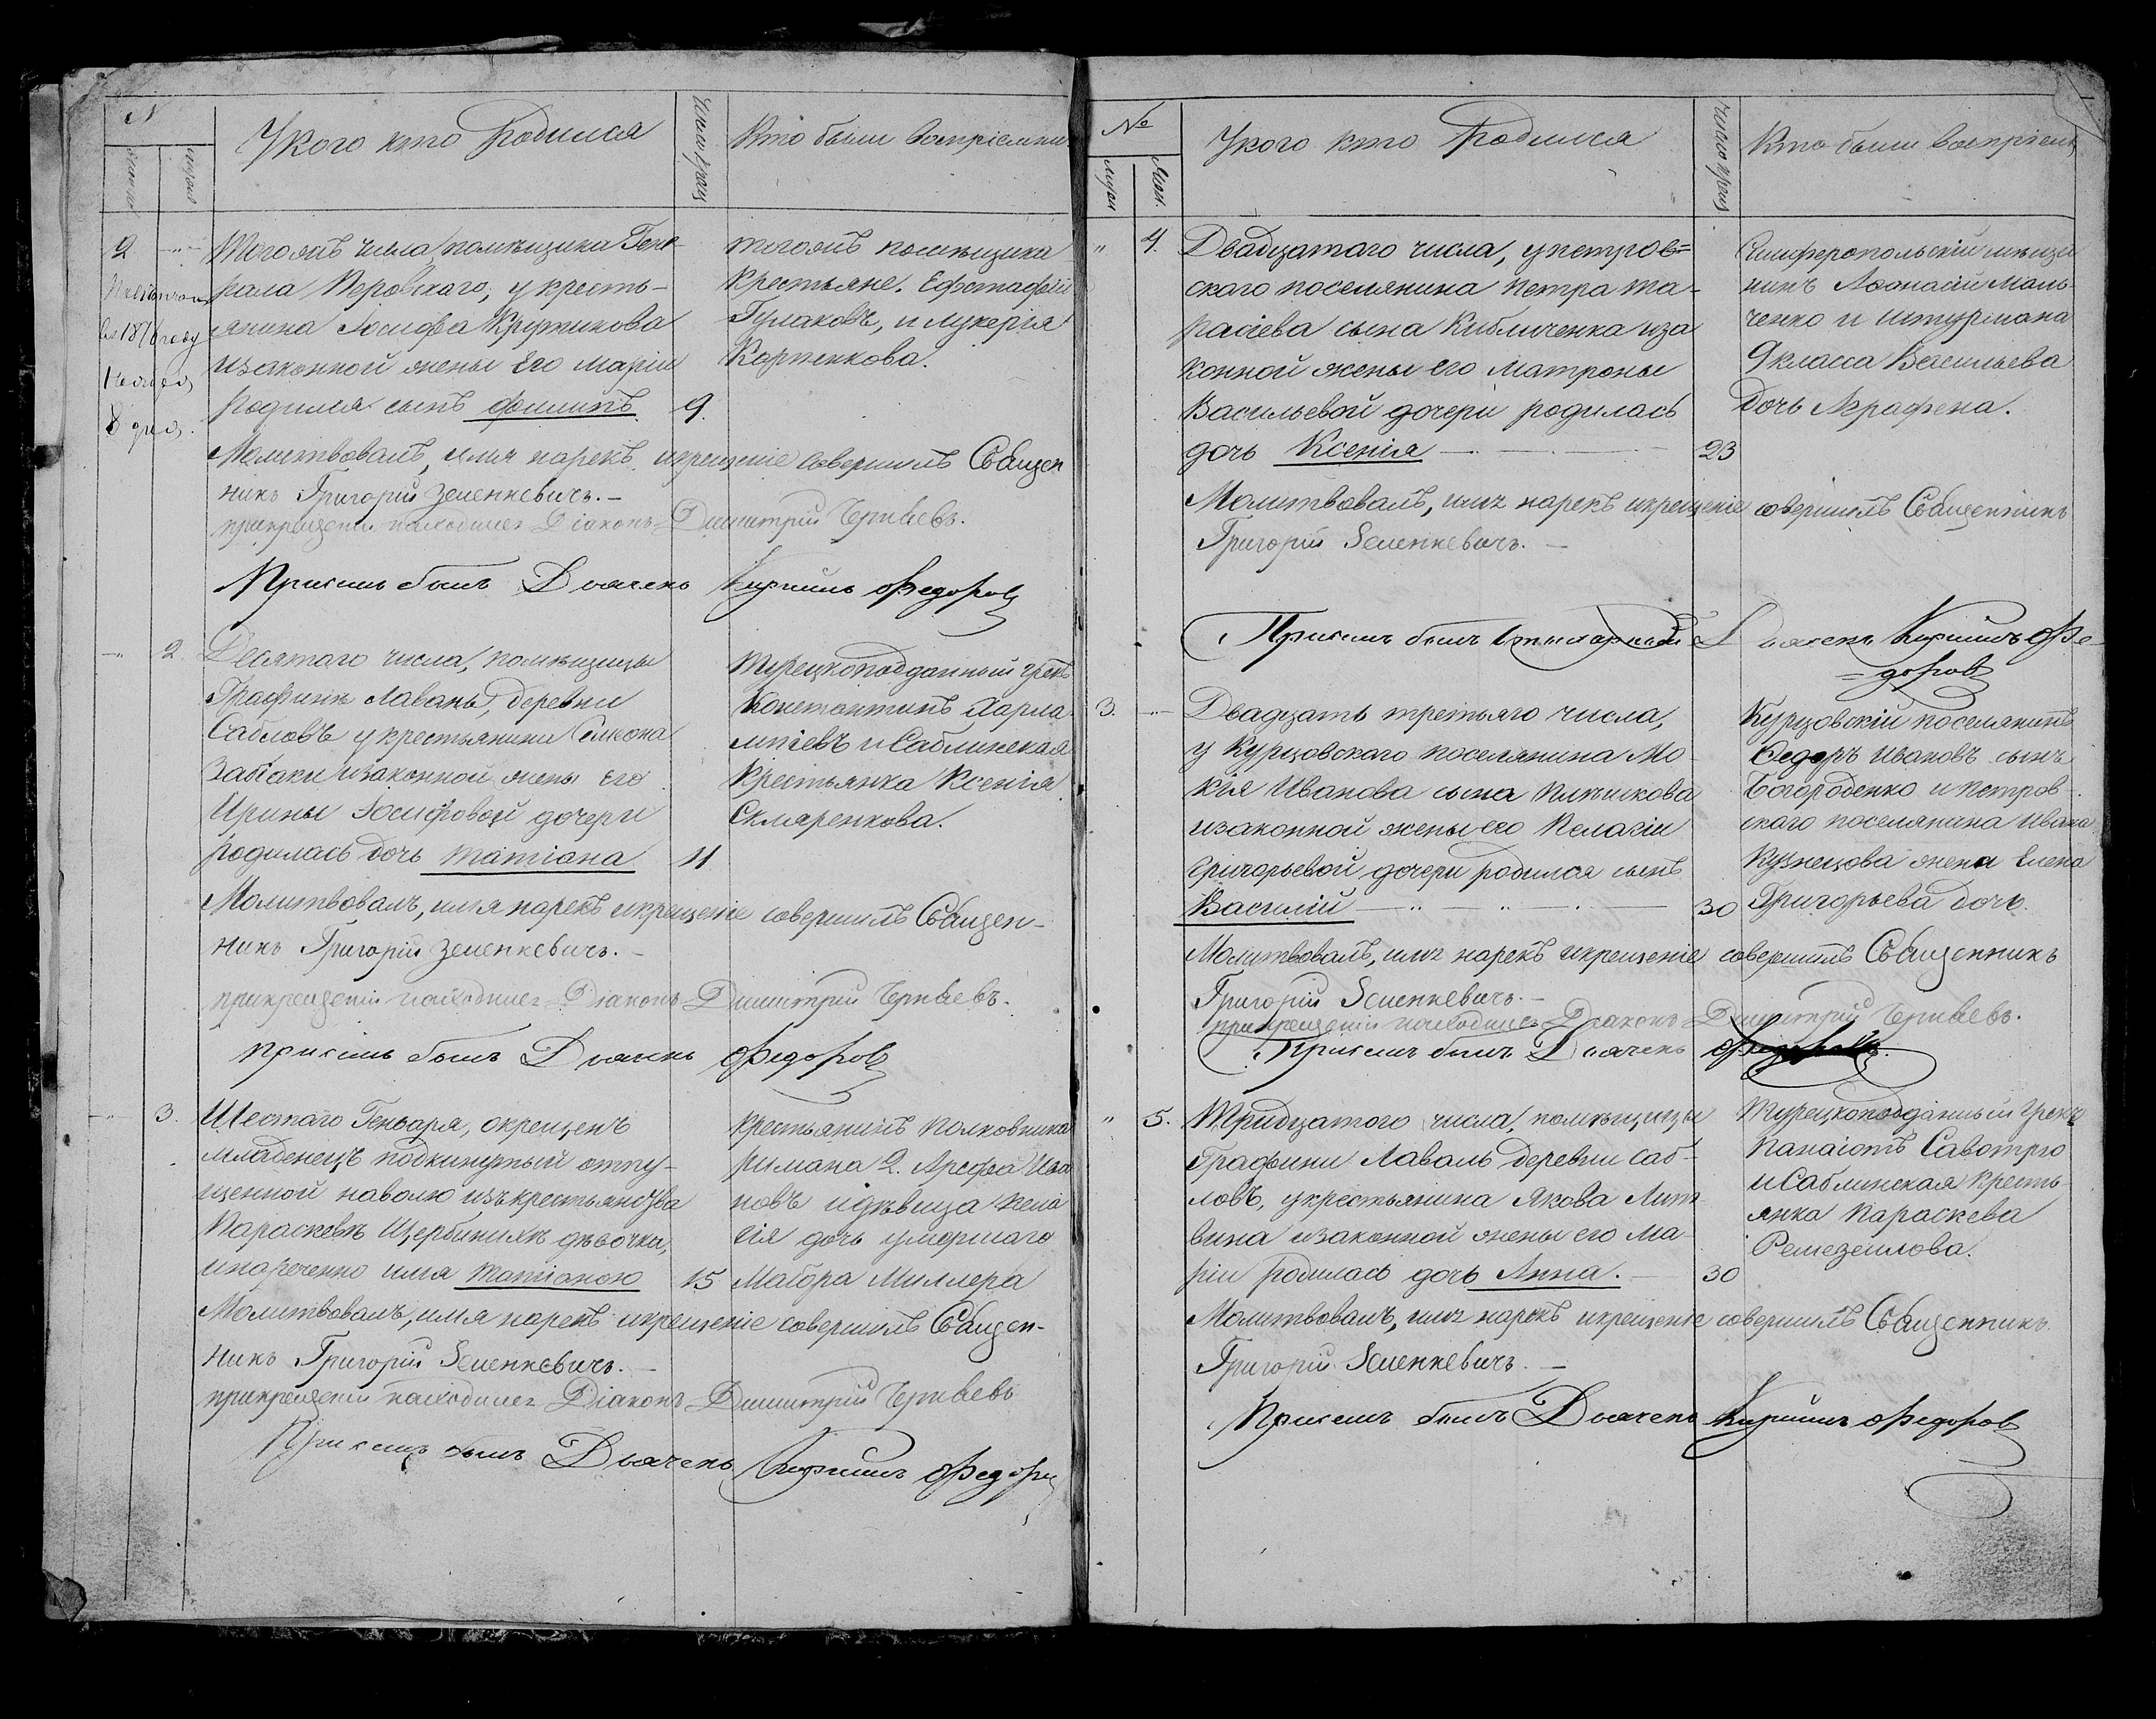 №
У кого кто родился
Число крещ
Кто были восприемни
2
Тогожъ числа, помѣщика Гене-
рала Перовскаго, у кресть-
янина Іосифа Крутикова
изаконной жены Его Маріи
родился сынъ Филипъ
9.
тогожъ помѣщика
Крестьяне. Ефстафій
Гулаковъ, и Лукерія
Карпенкова.
Молитвовалъ, имя нарекъ икрещеніе совершилъ Священ
никъ Григорій Зеленкевичъ. –
прикрещеніи находился Діаконъ Димитрій Чернаевъ.
При семъ былъ Дьячекъ Кирилъ Федоровъ
2.
Десятаго числа, помѣщицы
Графинѣ Лаваль, деревни
Сабловъ у крестьянини Симеона
Забіаки изаконной жены его
Ирины Іосифовой дочери
родилась дочь Татіана
11
Турецкоподданный грекъ
Константинъ Харла
мпіевъ и Саблинская
Крестьянка Ксенія
Скляренкова.
Молитвовалъ, имя нарекъ икрещеніе совершилъ Священ-
никъ Григорій Зеленкевичъ. –
прикрещеніи находился Діаконъ Димитрій Чернаевъ.
при семъ былъ Дьячекъ Федоровъ
3.
Шестаго Генваря, окрещенъ
младенецъ подкинутый отпу-
щенной наволю изъ крестьянства
Параскевѣ Щербининѣ дѣвочки,
инареченно имя Татіаною
15
Крестьянинъ Полковника
Римана 2. Арефа Ива
новъ идѣвица Пела
гія дочь умершаго
Маіора Миллера
Молитвовалъ, имя нарекъ икрещеніе совершилъ Священ-
никъ Григорій Зеленкевичъ. –
прикрещеніи находился Діаконъ Димитрій Чернаевъ
При семъ былъ Дьячекъ Кирилъ Федоровъ
№
У кого кто родился
Число крещ
Кто были восприем
4.
Двадцатаго числа, упетров=
скаго поселянина Петра Та-
расіева сына Кибличенка иза
конной жены его Матроны
Васильевой дочери родилась
дочь Ксенія
23
Симферопольскій мѣща
нинъ Афанасій Мань
ченко и штурмана
9 класса Васильева
дочь Аграфена.
Молитвовалъ, имя нарекъ икрещеніе совершилъ Священникъ
Григорій Зеленкевичъ. –
При семъ былъ Дьячекъ Кирилъ Фе-
=доровъ
3.
Двадцать третьяго числа,
у Курцовскаго поселянина Мо
кія Иванова сына
изаконной жены его Пелагіи
Григорьевой дочери родился сынъ
Василій
30
Курцовскій поселянинъ
Федоръ Ивановъ сынъ
Богороденко и Петров-
скаго поселянина Ивана
Кузнецова жена Елена
Григорьева дочь.
Молитвовалъ, имя нарекъ икрещеніе совершилъ Священникъ
Григорій Зеленкевичъ. –
прикрещеніи находился Діаконъ Димитрій Чернаевъ.
При семъ былъ Дьячекъ Федоровъ
5.
Тридцатого числа, помѣщицы
Графини Лаваль деревни Саб-
ловъ, укрестьянина Якова Лит
вина изаконной жены его Ма-
ріи родилась дочь Анна.
30
Турецкоподданный Грекъ
Панаіотъ Савотрго
и Саблинская Кресть
янка Параскева
Ремезенлова.
Молитвовалъ, имя нарекъ икрещеніе совершилъ Священникъ
Григорій Зеленкевичъ. –
При семъ былъ Дьячекъ Кирилъ Федоровъ